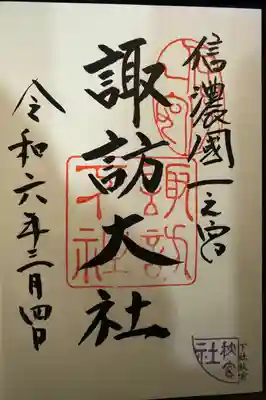 信濃國一之宮
諏訪大社
令和六年三月四日
諏訪大社
下社秋宮
秋宮
社